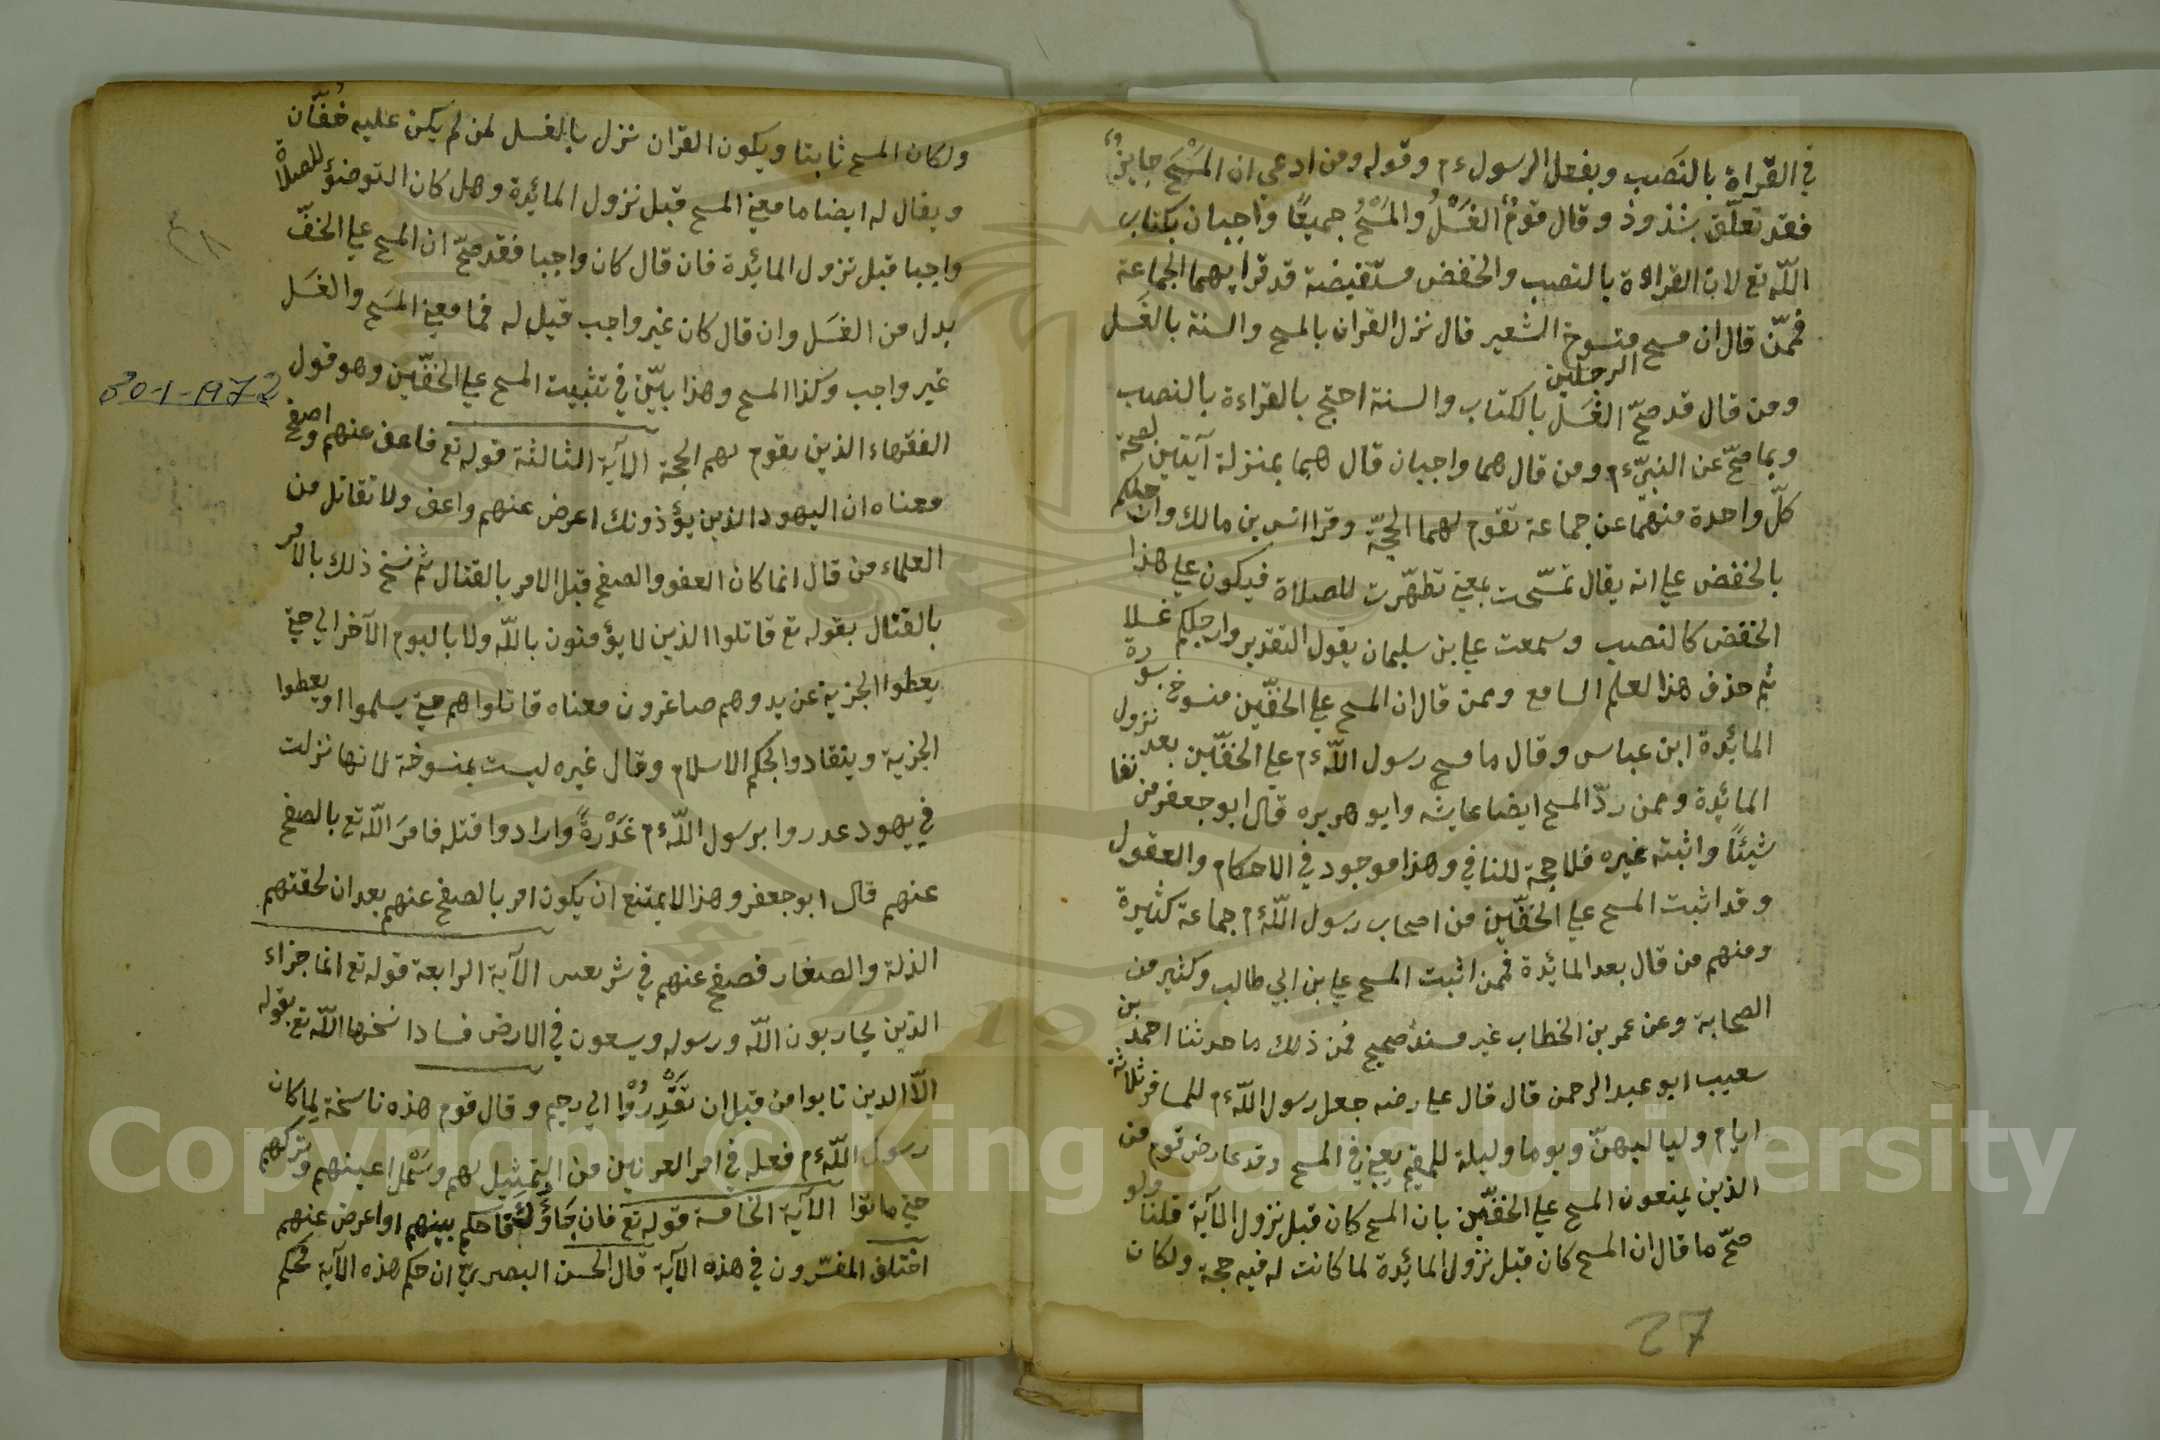 في القراة بالنَصب وبفعل الرسول ءم وقوله ومن ادعي ان المَسْحَ جايزٌ
فقد تعلّق بشذوذ وقال قومٌ الغَسْلُ والمَسْحُ جميعًا واجبان بكتاب
اللّه تع لان القراءة بالنصب والخفض مستفيضة قد قرا بهما الجماعة
فممّن قال ان مسح الرجلين منسوخ الشعير قال نزل القران بالمسح والسنة بالغَسل
ومن قال قد صحّ الغَسل بالكتاب والسنة احتج بالقراءة بالنصب
وبما صحّ عن النبيّ ءم ومن قال هما واجبان قال هما بمنزلة آيتين لصحة
كلّ واحدة منهما عن جماعة تقوم لهما الحجّة وقرا انس بن مالك وارجلكم
بالخفض علي انه يقال تمسّحت بمعني تطهّرت للصلاة فيكون علي هذا
الخفض كالنصب وسمعت علي بن سليمان يقول التقدير وارجلكم غسلا
ثم حذف هذا لعلم السامع وممن قال ان المسح علي الخفّين منسوخ بسورة
المائدة ابن عباس وقال ما مسح رسول اللّه ءم علي الخفّين بعد نزول
المائدة وممن ردّ المسح ايضا عايشه وابو هريره قال ابو جعفر من نفا
شيئًا واثبته غيره فلا حجة للنافي وهذا موجود في الاحكام والعقول
وقد اثبت المسح علي الخفّين من اصحاب رسول اللّه ءم جماعة كثيرة
ومنهم من قال بعد المائدة فممن اثبت المسح علي بن ابي طالب وكثير من
الصحابة وعن عمر بن الخطاب غير مسند صحيح فمن ذلك ما حدثنا احمد بن
سعيب ابو عبد الرحمن قال قال علي رضه جعل رسول اللّه ءم للمسافر ثلاثة
ايام ولياليهنّ ويوما وليلة للمقيم يعني في المسح وقد عارض قوم من
الذين يمنعون المسح علي الخفّين بان المسح كان قبل نزول المآية قلنا ولو
صحّ ما قال ان المسح كان قبل نزول المائدة لما كانت له فيه حجة ولكان
27
ولكان المسح ثابتا ويكون القران نزل بالغسل لمن لم يكن عليه خُفّان
ويقال له ايضا ما معني المسح قبل نزول المائدة وهل كان التوضئ للصلاة
واجبا قبل نزول المائدة فان قال كان واجبا فقد صحّ ان المسح علي الخفّ
بدل من الغسَل وان قال كان غير واجب قيل له فما معني المسَح والغسَل
غير واجب وكذا المسح وهذا بيّن في تثبيت المسح علي الخفّين وهو قول
30-1-1972
الفقهاء الذين يقوم بهم الحجة الآية الثالثة قوله تع فاعف عنهم واصفح
معناه ان اليهود الذين يؤذونك اعرض عنهم واعف ولا تقاتل من
العلماء من قال انما كان العفو والصفح قبل الامر بالقتال ثم نسخ ذلك بالامر
بالقتال بقوله تع قاتلوا الذين لا يؤمنون باللّه ولا باليوم الآخر الي حتي
يعطوا الجزية عن يد وهم صاغرون معناه قاتلوا هم حتي يسلموا او يعطوا
الجزية وينقادوا لحكم الاسلام وقال غيره ليست بمنسوخة لانها نزلت
في يهود عدروا برسول اللّه ءم غَدْرةً وارادوا قتله فامرَ اللّه تع بالصفح
عنهم قال ابو جعفر وهذا لا يمتنع ان يكون امر بالصفح عنهم بعد ان لحقتهم
الذلة والصغار فصفح عنهم في الآية الرابعة قوله تع انما جزاء
الذين يحاربون اللّه ورسوله ويسعون في الارض فسادا نسخها اللّه تع بقوله
الّا الدين تابوا من قبل ان تَقْدِرُوْا الي رحيم وقال قوم هذه ناسخة لِما كان
رسول اللّه ءم فعله في امر العرنين من التمثيل بهم وسَمْل اعينهم وتركهم
حتي ماتوا الآية الخامسة قوله تع فان جَاؤُكَ فاحكم بينهم او اعرض عنهم
اختلف المفسّرون في هذه الآية قال الحسن البصريّ ان حكم هذه الآية محكم
Copyright © King Saud University